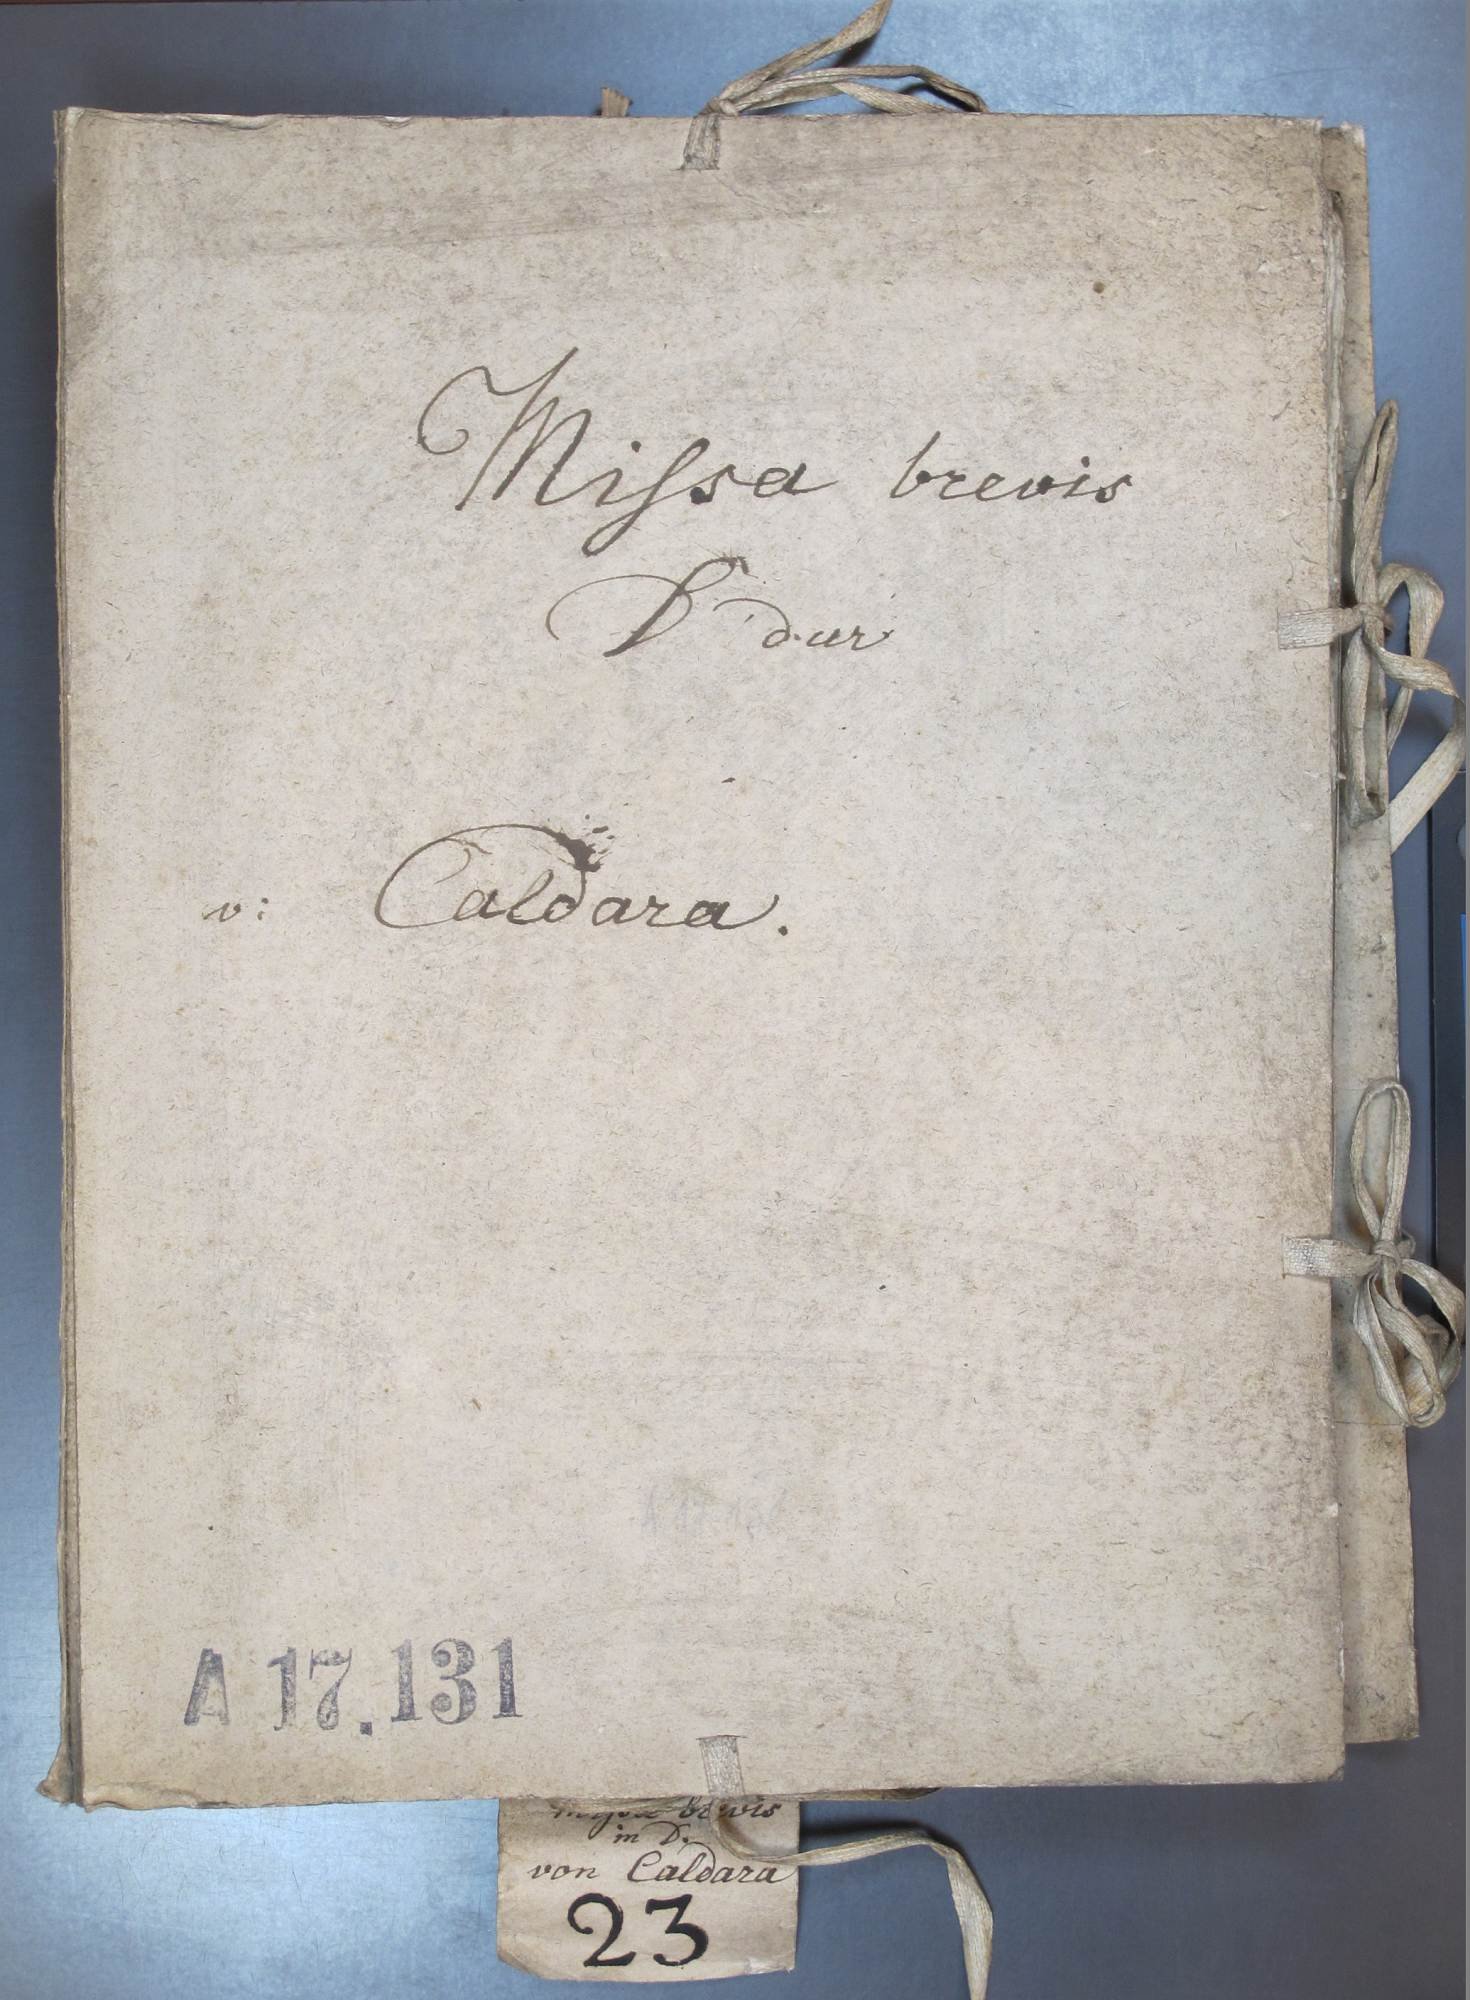 Miſsa brevis
D dur
v: Caldara.
A 17.131
Missa brevis
in D.
von Caldara
23